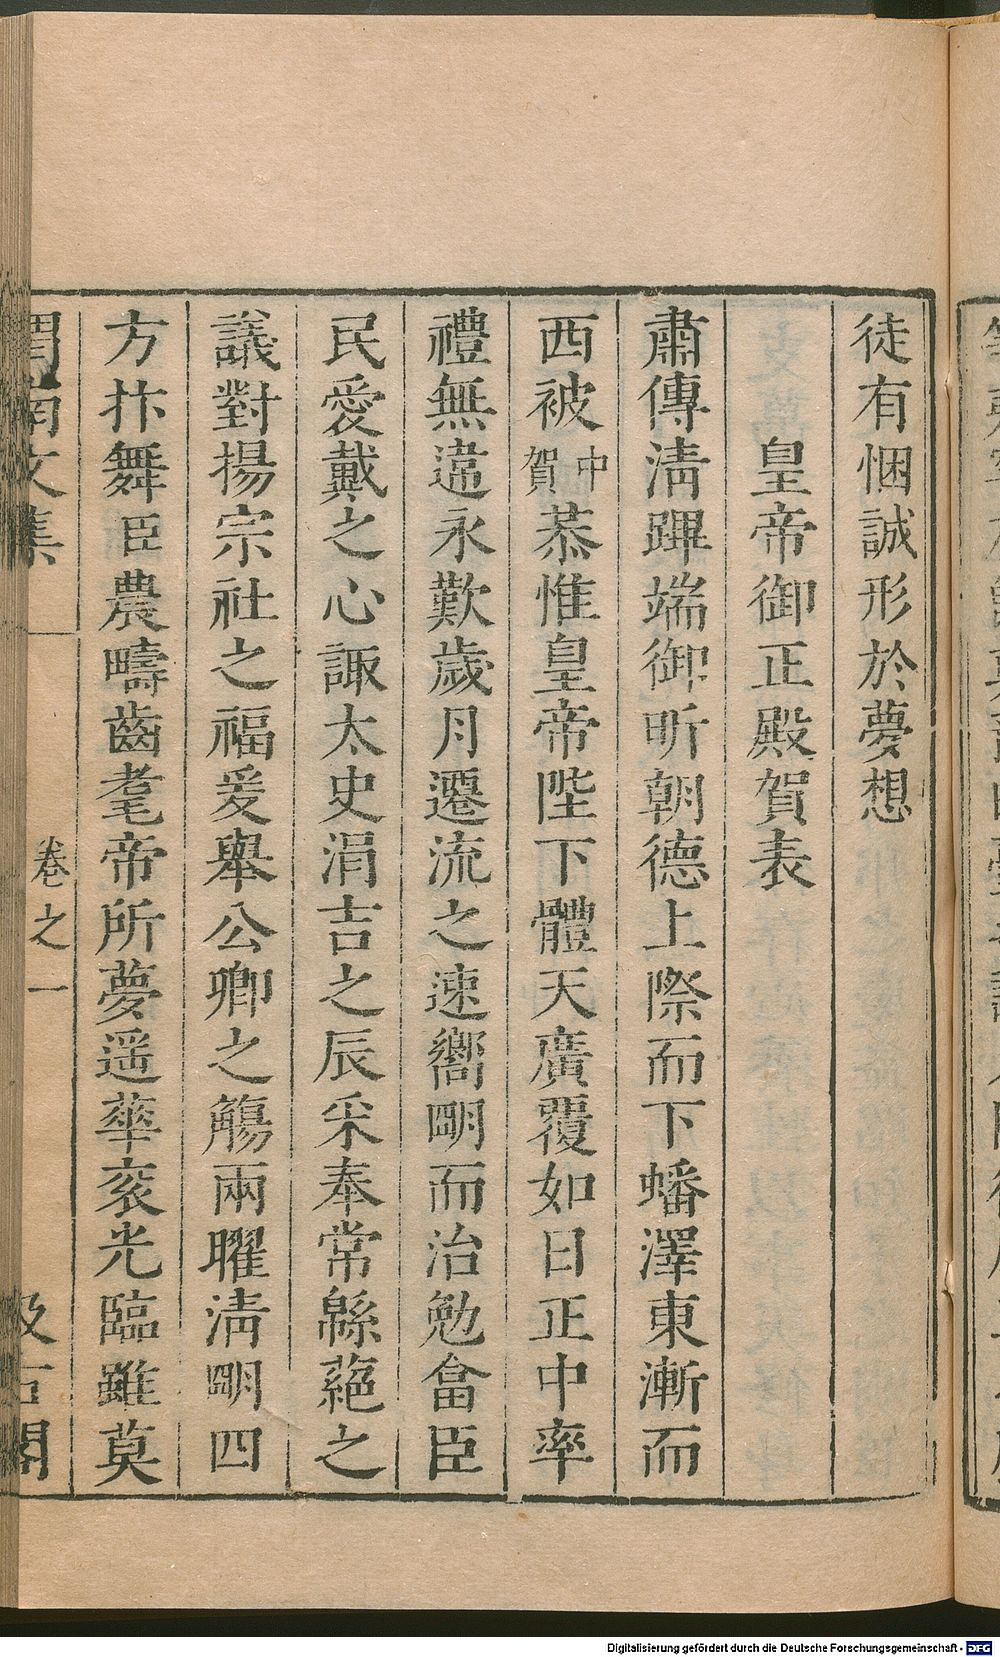 徒有悃誠形於夢想
皇帝御正殿賀表
肅傳淸蹕端御昕朝德上際而下蟠澤東漸而
西被中賀恭惟皇帝陛下體天廣覆如日正中率
禮無違永歎歲月遷流之速嚮明而治勉畣臣
民愛戴之心諏太史涓吉之辰采奉常緜蕝之
議對揚宗社之福爰舉公卿之觴兩曜淸明四
方抃舞臣農疇齒耄帝所夢遥華衮光臨雖莫
南文集
卷之一
及古閣
Digitalisierung gefördert durch die Deutsche Forschungsgemeinschaft - DFG